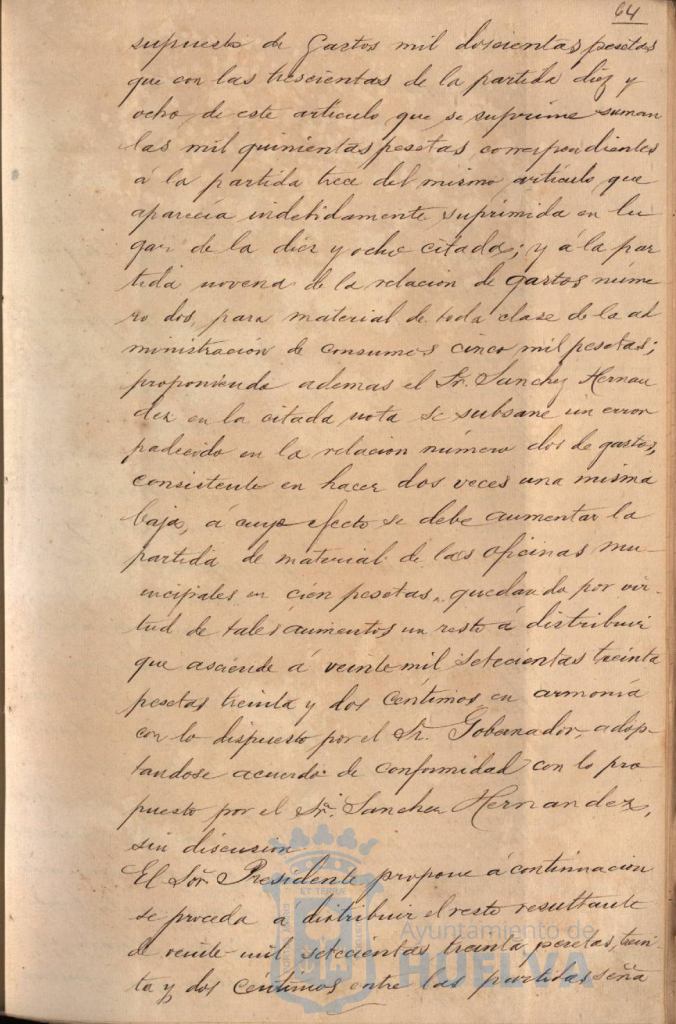 64
supuesto de Gastos mil doscientas pesetas
que con las trescientas de la partida diez y
ocho de este articulo que se suprime suman
las mil quinientas pesetas correspondientes
á la partida trece del mismo artículo que
aparecia indebidamente suprimida en lu
gar de la diez y ocho citada; y á la par
tida novena de la relacion de gastos núme
ro dos, para material de toda clase de la ad
ministración de consumos cinco mil pesetas;
proponiendo ademas el Sr. Sanchez Hernan
dez en la citada nota se subsane un error
padecido en la relacion número dos de gastos,
consistente en hacer dos veces una misma
baja, á cuyo efecto se debe aumentar la
partida de material de las oficinas mu-
nicipales en cien pesetas, quedando por vir-
tud de tales aumentos un resto á distribuir
que asciende á veinte mil setecientas treinta
pesetas treinta y dos céntimos en armonía
con lo dispuesto por el Sr. Gobernador, adop-
tandose acuerdo de conformidad con lo pro
puesto por el Sr. Sanchez Hernandez,
sin discusion.
El Sor. Presidente propone á continuacion
se proceda a distribuir el resto resultante
de veinte mil setecientas treinta pesetas, trein-
ta y dos céntimos entre las partidas seña
Ayuntamiento de
HUELVA